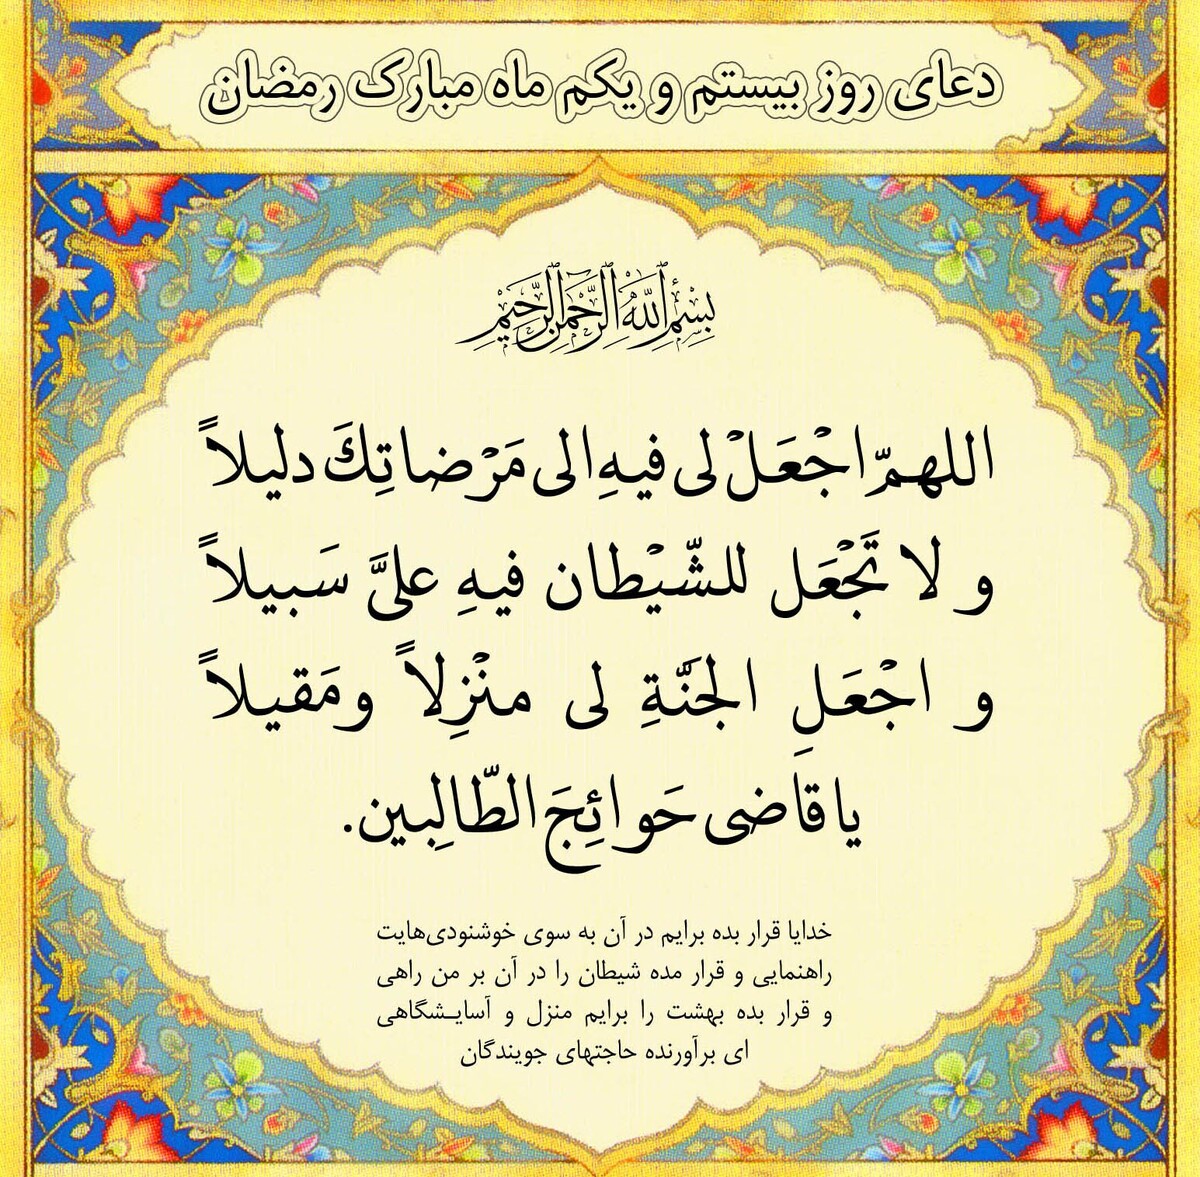 دعای روز بیستم و یکم ماه مبارک رمضان
بِسْمِ اللَّهِ الرَّحْمَنِ الرَّحِيمِ
اللهمّ اجْعَلْ لی فیهِ الی مَرْضاتِكَ دلیلاً
و لا تَجْعَل للشّیْطان فیهِ علیَّ سَبیلاً
و اجْعَلِ الجَنّةِ لی منْزِلاً ومَقیلاً
یا قاضی حَوائِجَ الطّالِبین.
خدایا قرار بده برایم در آن به سوی خوشنودی‌هایت
راهنمایی و قرار مده شیطان را در آن بر من راهی
و قرار بده بهشت را برایم منزل و آسایشگاهی
ای برآورنده حاجتهای جویندگان